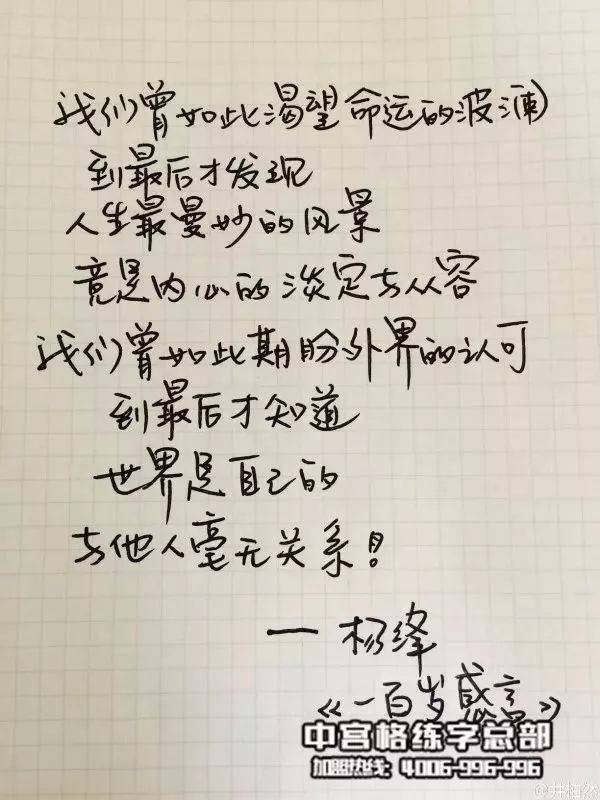 我们曾如此渴望命运的波澜
到最后才发现
人生最曼妙的风景
竟是内心的淡定与从容
我们曾如此期盼外界的认可
到最后才知道
世界是自己的
与他人毫无关系!
一杨绛
《一百岁感言》
中宫格练字总部
加盟热线: 4006-996-996
@井柏然